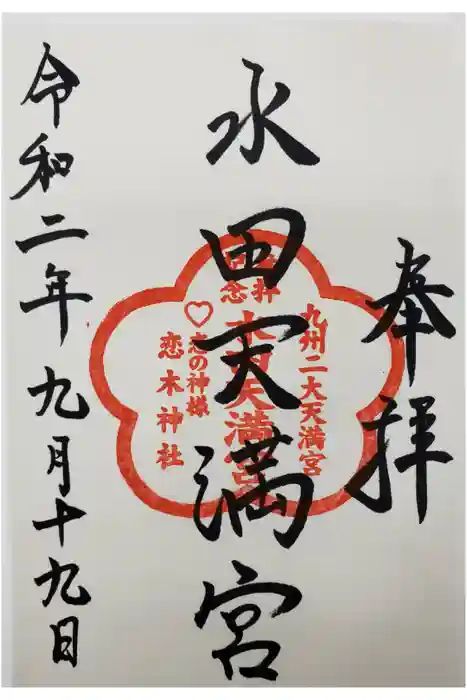 奉拝
九州二大天満宮
参拝
記念
水田天満宮
水田天満宮
♡恋の神様
恋木神社
令和二年九月十九日